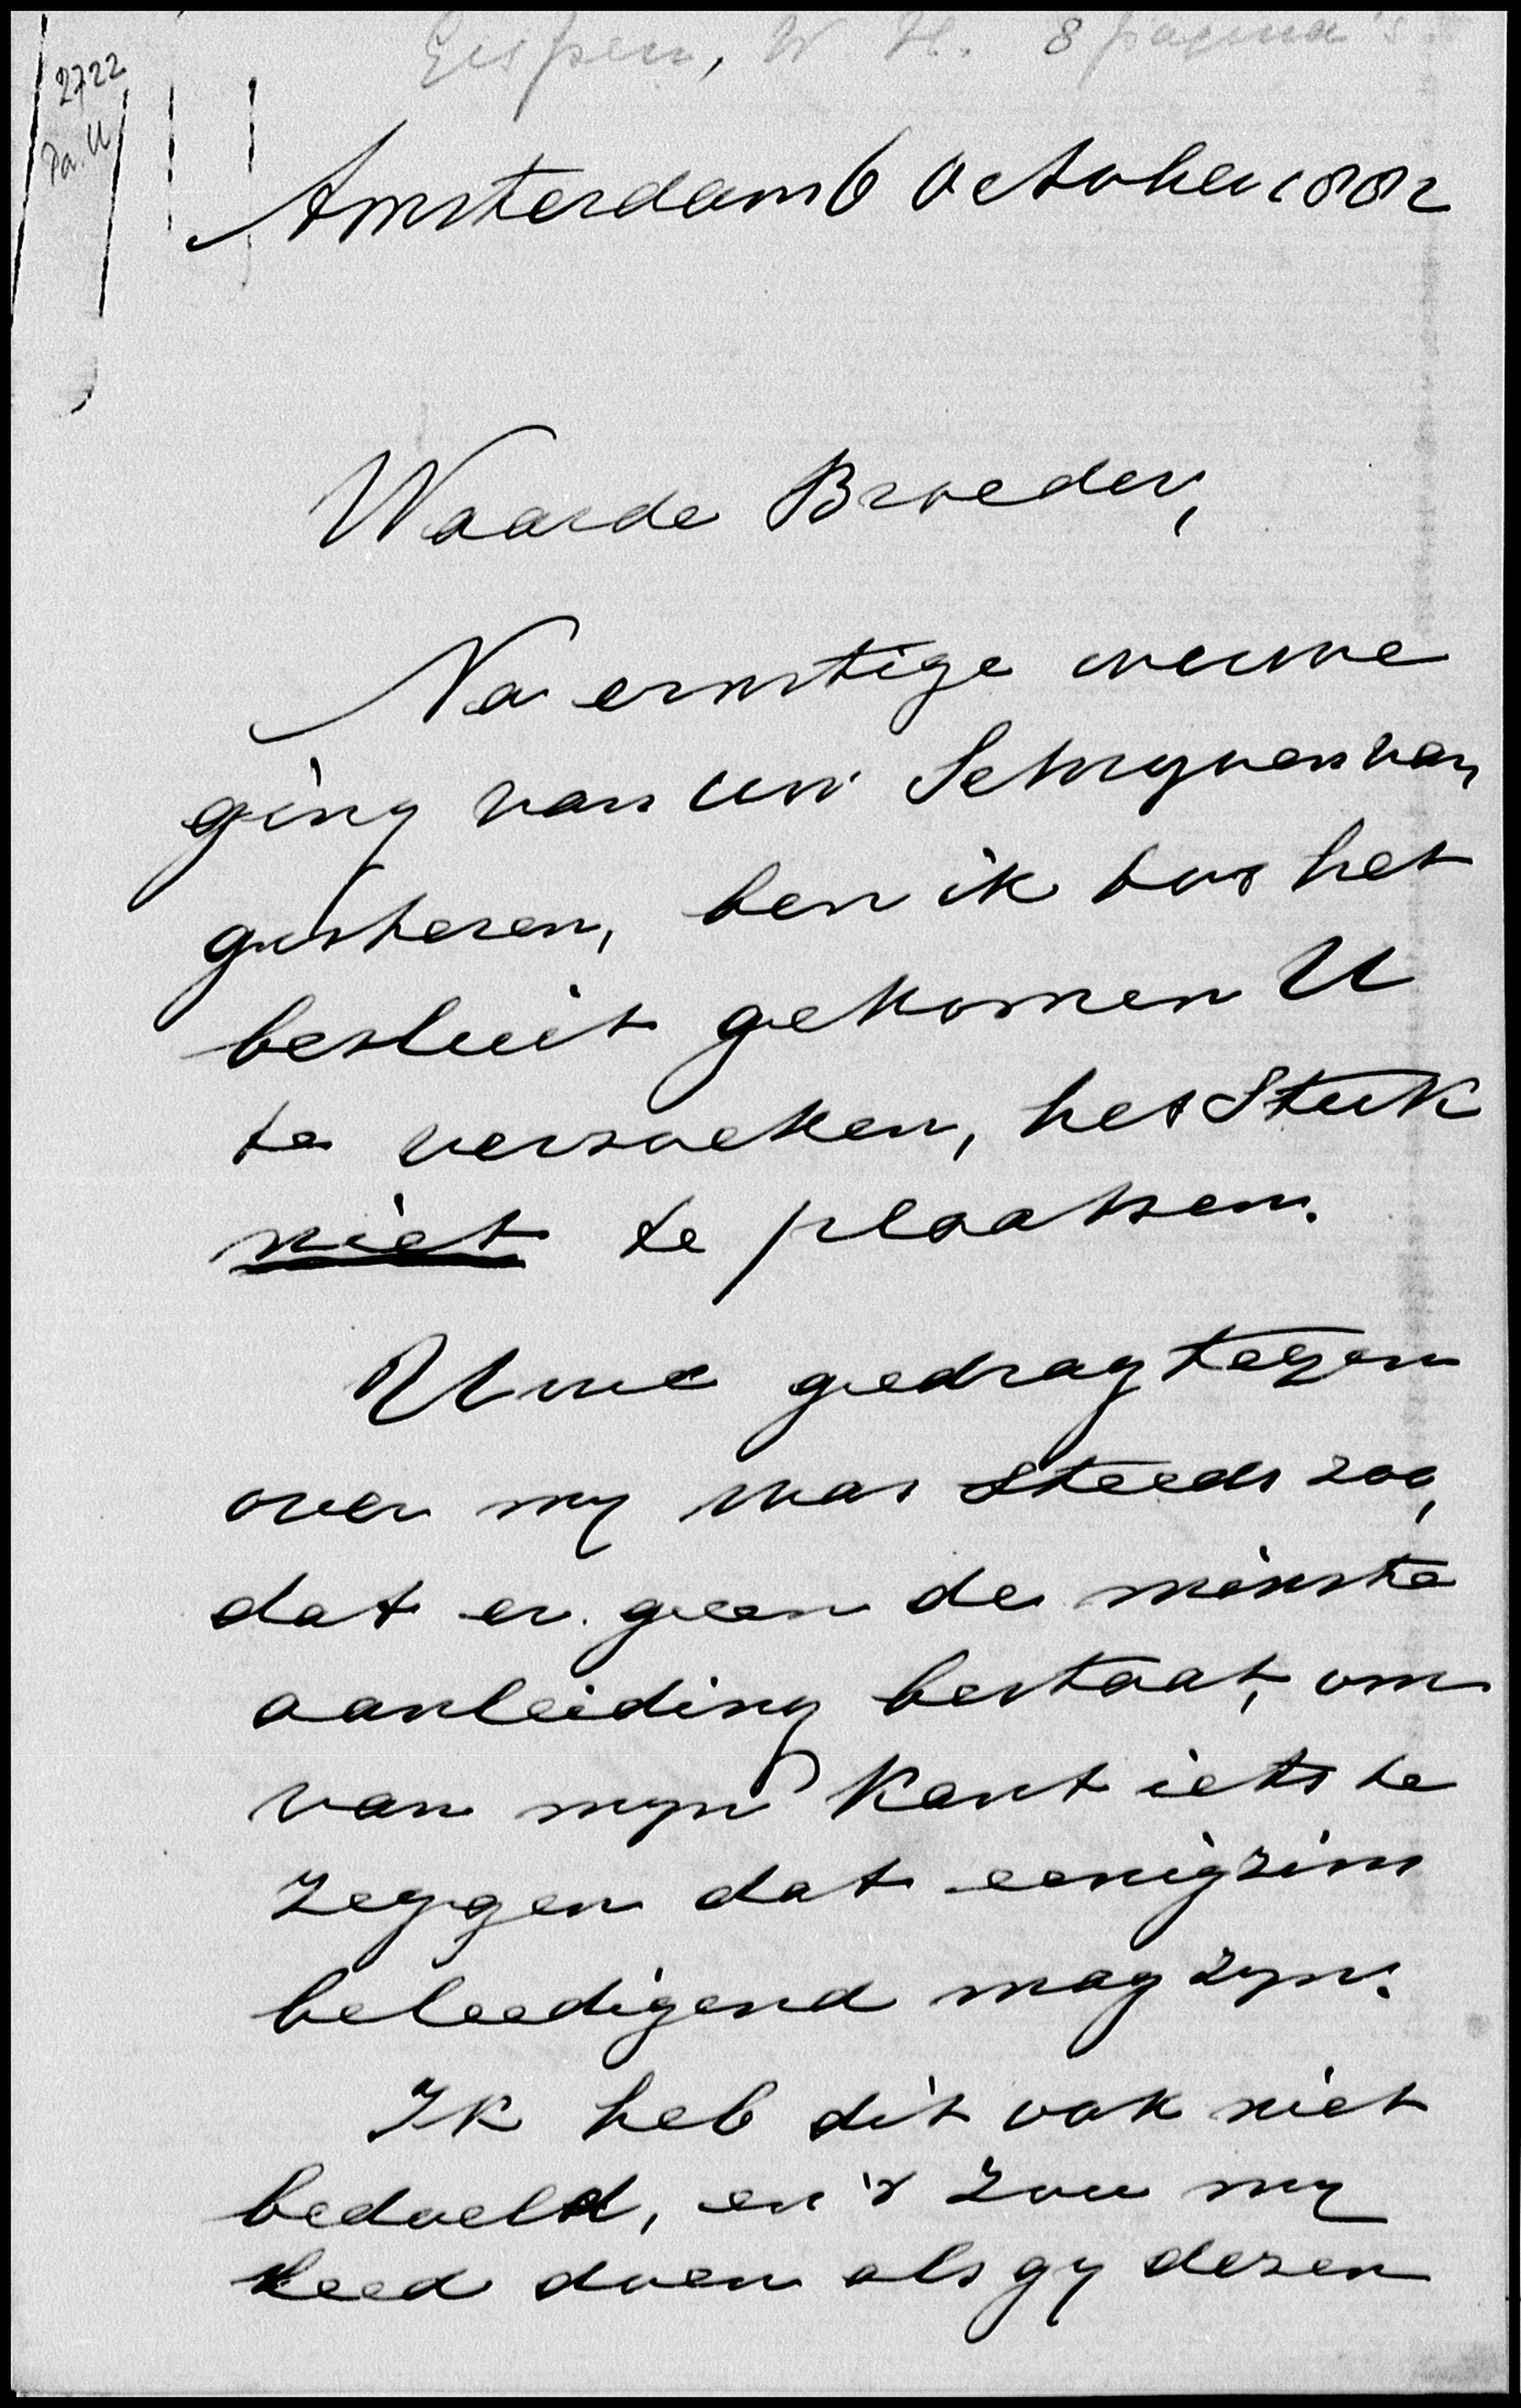 Gispen, W. H. 8 pagina's
2722
Pa. U
Amsterdam 6 October 1882
Waarde Broeder,
Na ernstige overwe
ging van uw Schryven van
gisteren, ben ik tot het
besluit gekomen U
te verzoeken, het Stuk
niet te plaatsen.
Uwe gedrag tegen
over my was steeds zoo,
dat er geen de minste
aanleiding bestaat, om
van myn kant iets te
zeggen dat eenigzins
beleedigend mag zyn.
Ik heb dit ook niet
bedoeld, en 't zou my
leed doen als gy dezen